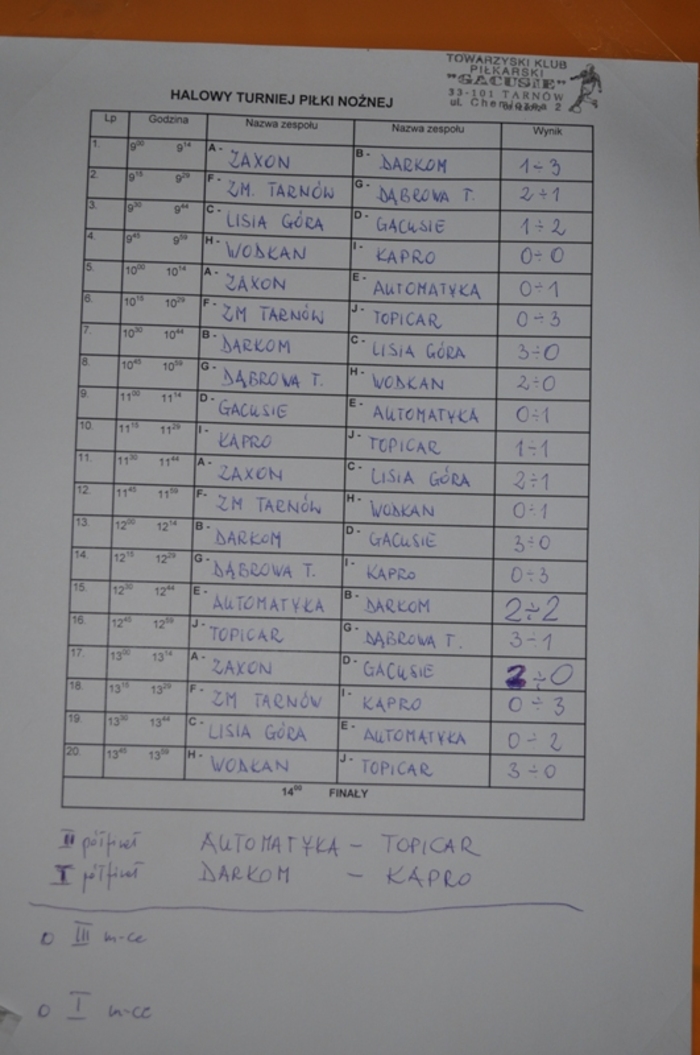 TOWARZYSKI KLUB
PIŁKARSKI
"GACUSIE"
33-101 TARNÓW
ul. Chemiczna 2
HALOWY TURNIEJ PIŁKI NOŻNEJ
Lp Godzina Nazwa zespołu Nazwa zespołu Wynik
1. 9⁰⁰ 9¹⁴ A - ZAXON B - DARKOM 1÷3
2. 9¹⁵ 9²⁹ F - ZM. TARNÓW G - DĄBROWA T. 2÷1
3. 9³⁰ 9⁴⁴ C - LISIA GÓRA D - GACUSIE 1÷2
4. 9⁴⁵ 9⁵⁹ H - WODKAN I - KAPRO 0÷0
5. 10⁰⁰ 10¹⁴ A - ZAXON E - AUTOMATYKA 0÷1
6. 10¹⁵ 10²⁹ F - ZM TARNÓW J - TOPICAR 0÷3
7. 10³⁰ 10⁴⁴ B - DARKOM C - LISIA GÓRA 3÷0
8. 10⁴⁵ 10⁵⁹ G - DĄBROWA T. H - WODKAN 2÷0
9. 11⁰⁰ 11¹⁴ D - GACUSIE E - AUTOMATYKA 0÷1
10. 11¹⁵ 11²⁹ I - KAPRO J - TOPICAR 1÷1
11. 11³⁰ 11⁴⁴ A - ZAXON C - LISIA GÓRA 2÷1
12. 11⁴⁵ 11⁵⁹ F - ZM TARNÓW H - WODKAN 0÷1
13. 12⁰⁰ 12¹⁴ B - DARKOM D - GACUSIE 3÷0
14. 12¹⁵ 12²⁹ G - DĄBROWA T. I - KAPRO 0÷3
15. 12³⁰ 12⁴⁴ E - AUTOMATYKA B - DARKOM 2÷2
16. 12⁴⁵ 12⁵⁹ J - TOPICAR G - DĄBROWA T. 3÷1
17. 13⁰⁰ 13¹⁴ A - ZAXON D - GACUSIE 2÷0
18. 13¹⁵ 13²⁹ F - ZM TARNÓW I - KAPRO 0÷3
19. 13³⁰ 13⁴⁴ C - LISIA GÓRA E - AUTOMATYKA 0÷2
20. 13⁴⁵ 13⁵⁹ H - WODKAN J - TOPICAR 3÷0
14⁰⁰ FINAŁY
II półfinał AUTOMATYKA - TOPICAR
I półfinał DARKOM - KAPRO
o III m-ce
o I m-ce